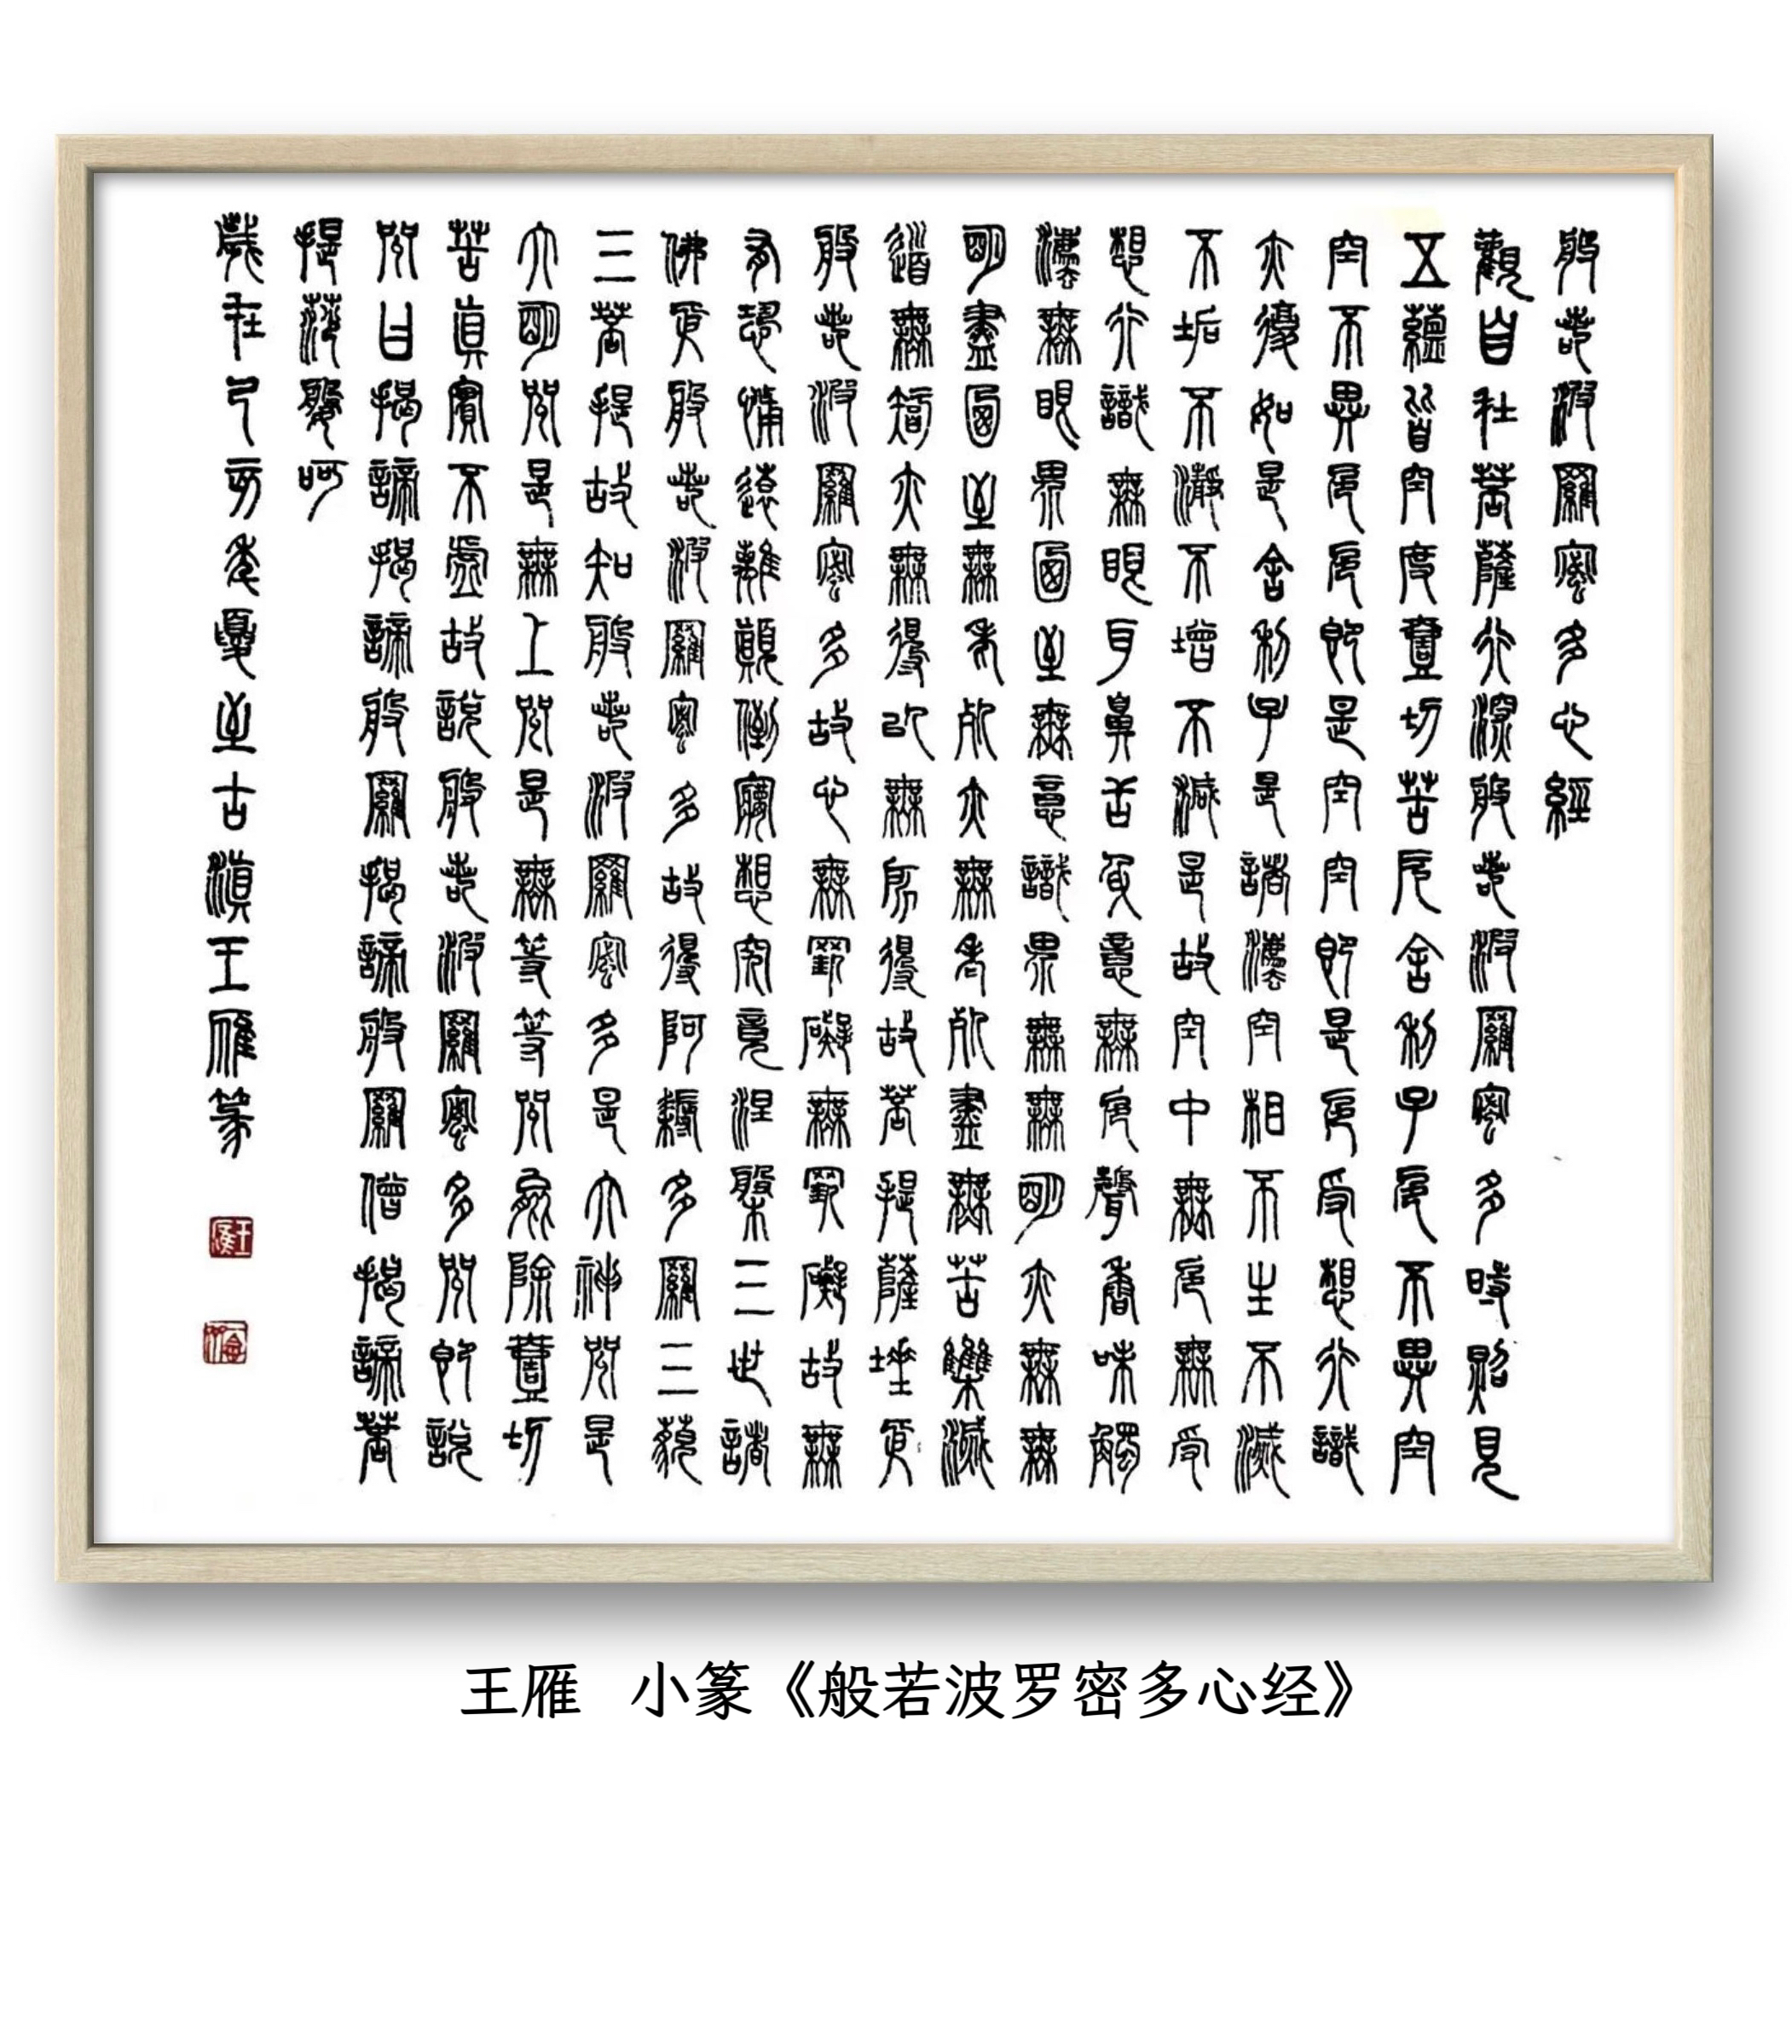 般若波羅密多心經
觀自在菩薩行深般若波羅密多時照見
五蘊皆空度壹切苦厄舍利子色不異空
空不異色色即是空空即是色受想行識
亦復如是舍利子是諸法空相不生不滅
不垢不淨不增不減是故空中無色無受
想行識無眼耳鼻舌身意無色聲香味觸
法無眼界乃至無意識界無無明亦無無
明盡乃至無老死亦無老死盡無苦集滅
道無智亦無得以無所得故菩提薩埵依
般若波羅密多故心無罣礙無罣礙故無
有恐怖遠離顛倒夢想究竟涅槃三世諸
佛依般若波羅密多故得阿耨多羅三藐
三菩提故知般若波羅密多是大神咒是
大明咒是無上咒是無等等咒能除壹切
苦真實不虛故說般若波羅密多咒即說
咒曰揭諦揭諦般羅揭諦般羅僧揭諦菩
提莎婆呵
歲在己亥年夏至古滇王雁篆
王雁
王雁 小篆《般若波罗密多心经》